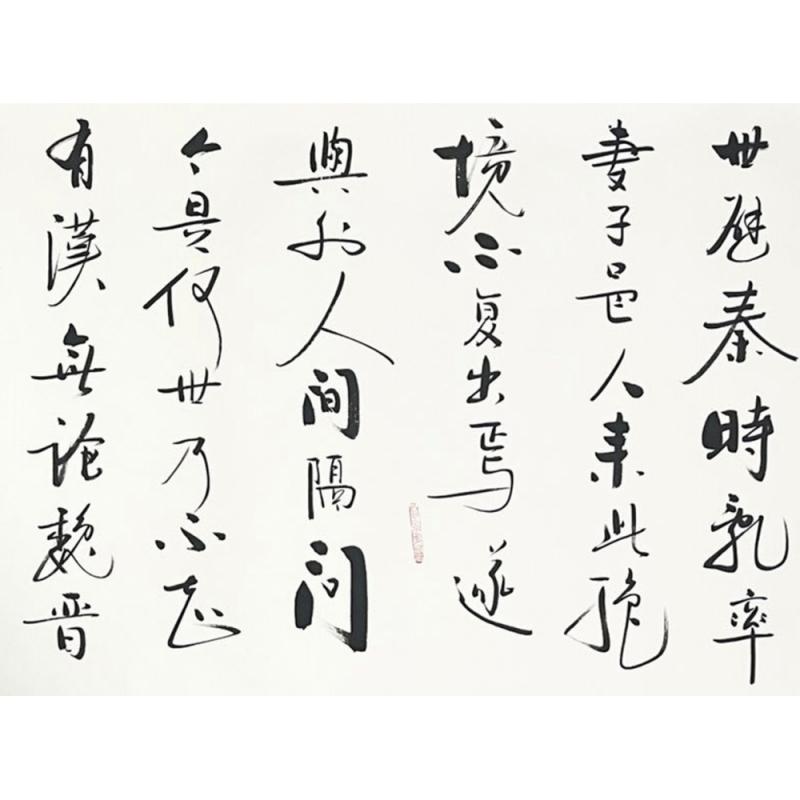 世避秦時亂率
妻子邑人来此絶
境不復出焉遂
與外人間隔問
今是何世乃不知
有漢無論魏晉